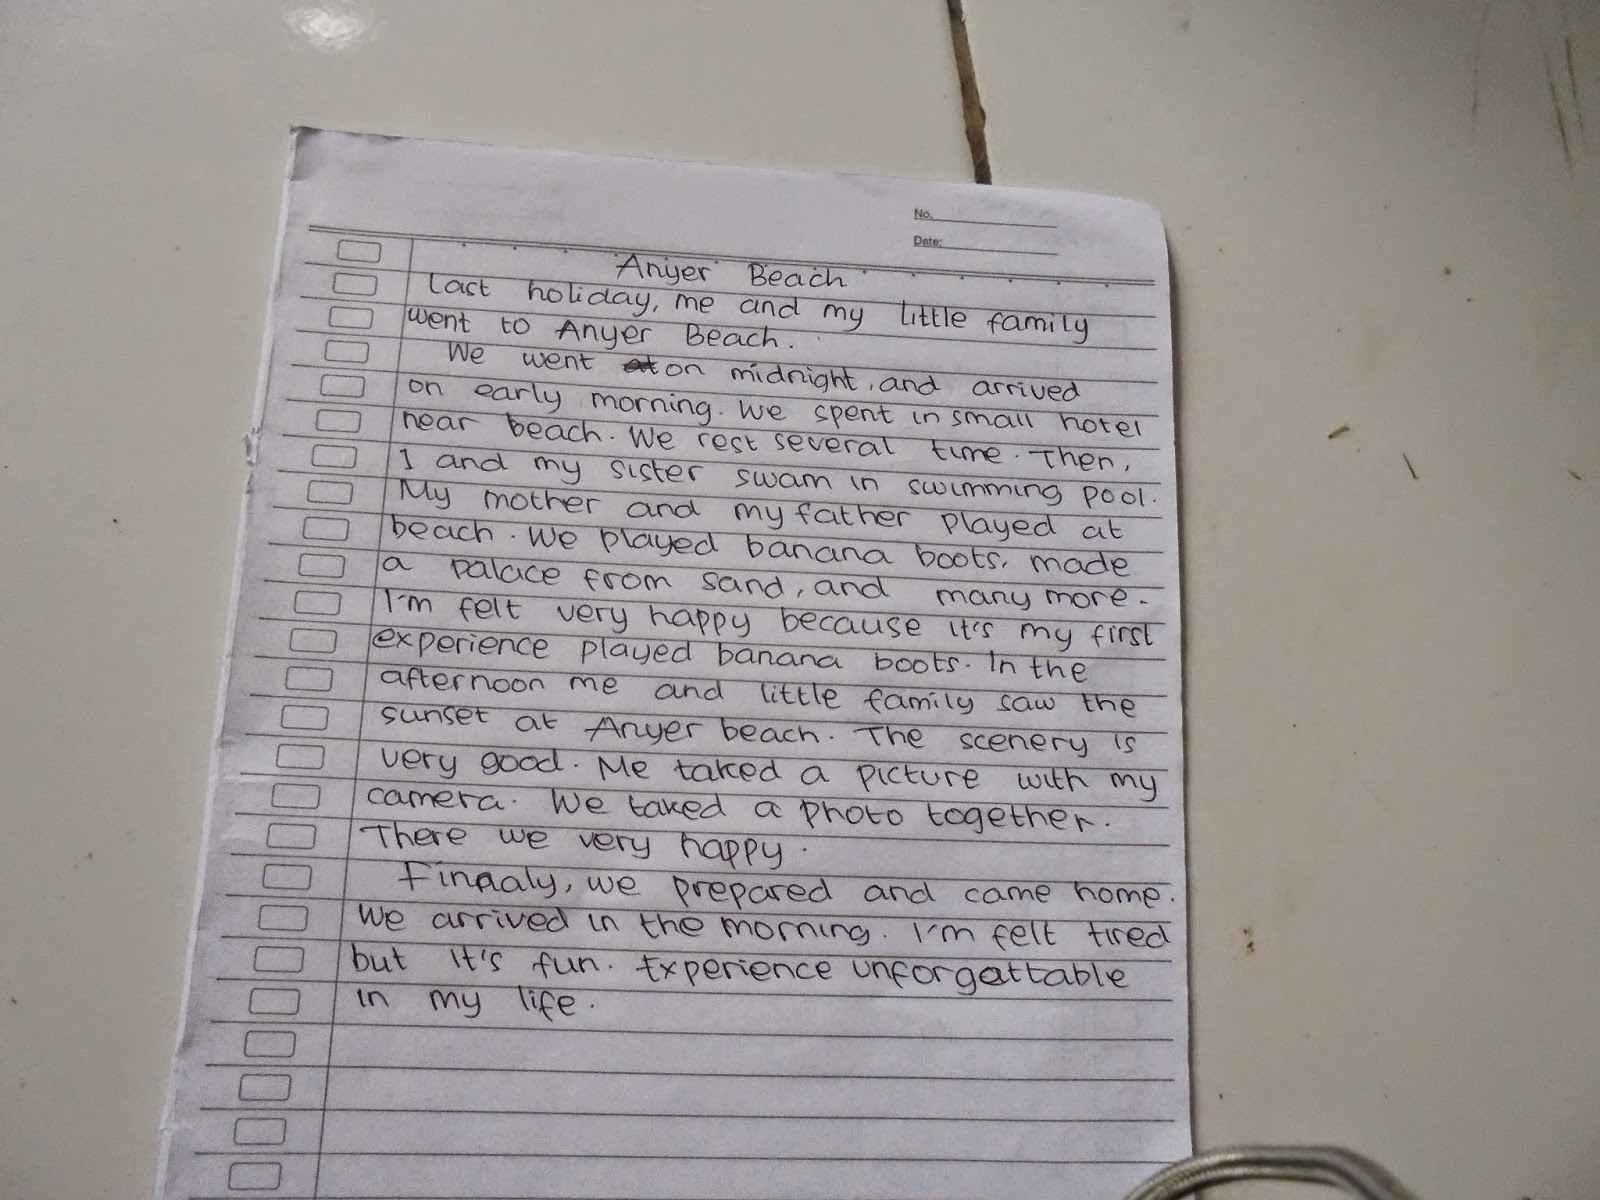 No.
Date:
Anyer Beach
Last holiday, me and my little family
went to Anyer Beach.
We went on midnight, and arrived
on early morning. We spent in small hotel
near beach. We rest several time. Then,
I and my sister swam in swimming pool.
My mother and my father played at
beach. We played banana boots, made
a palace from sand, and many more.
I'm felt very happy because it's my first
experience played banana boots. In the
afternoon me and little family saw the
sunset at Anyer beach. The scenery is
very good. Me taked a picture with my
camera. We taked a photo together.
There we very happy.
Finaaly, we prepared and came home.
We arrived in the morning. I'm felt tired
but it's fun. Experience unforgattable
in my life.